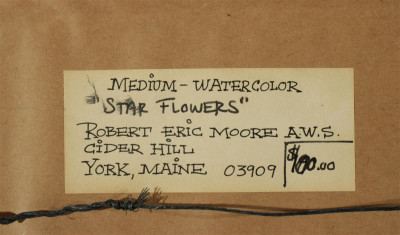 MEDIUM - WATERCOLOR
"STAR FLOWERS"
ROBERT ERIC MOORE A.W.S.
CIDER HILL
YORK, MAINE 03909 $100.00